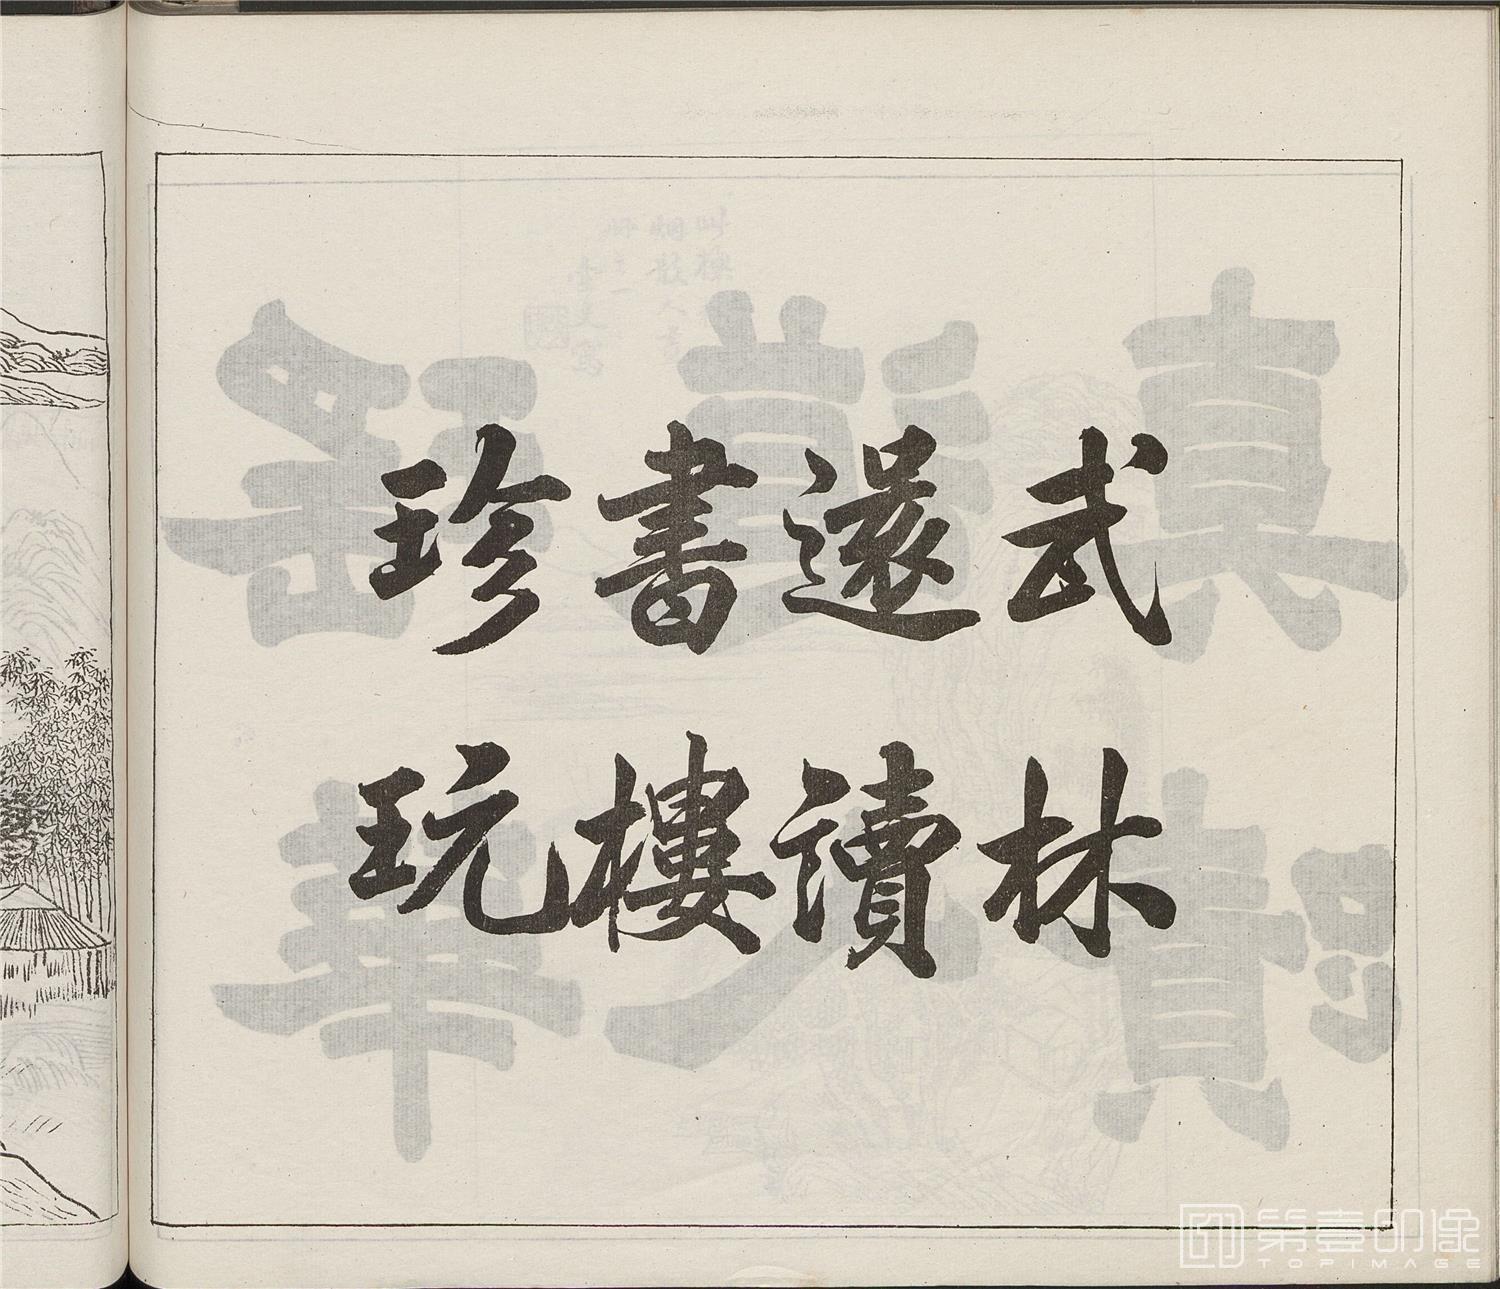 武林
還讀
書樓
珍玩
第壹印像
TOPIMAGE